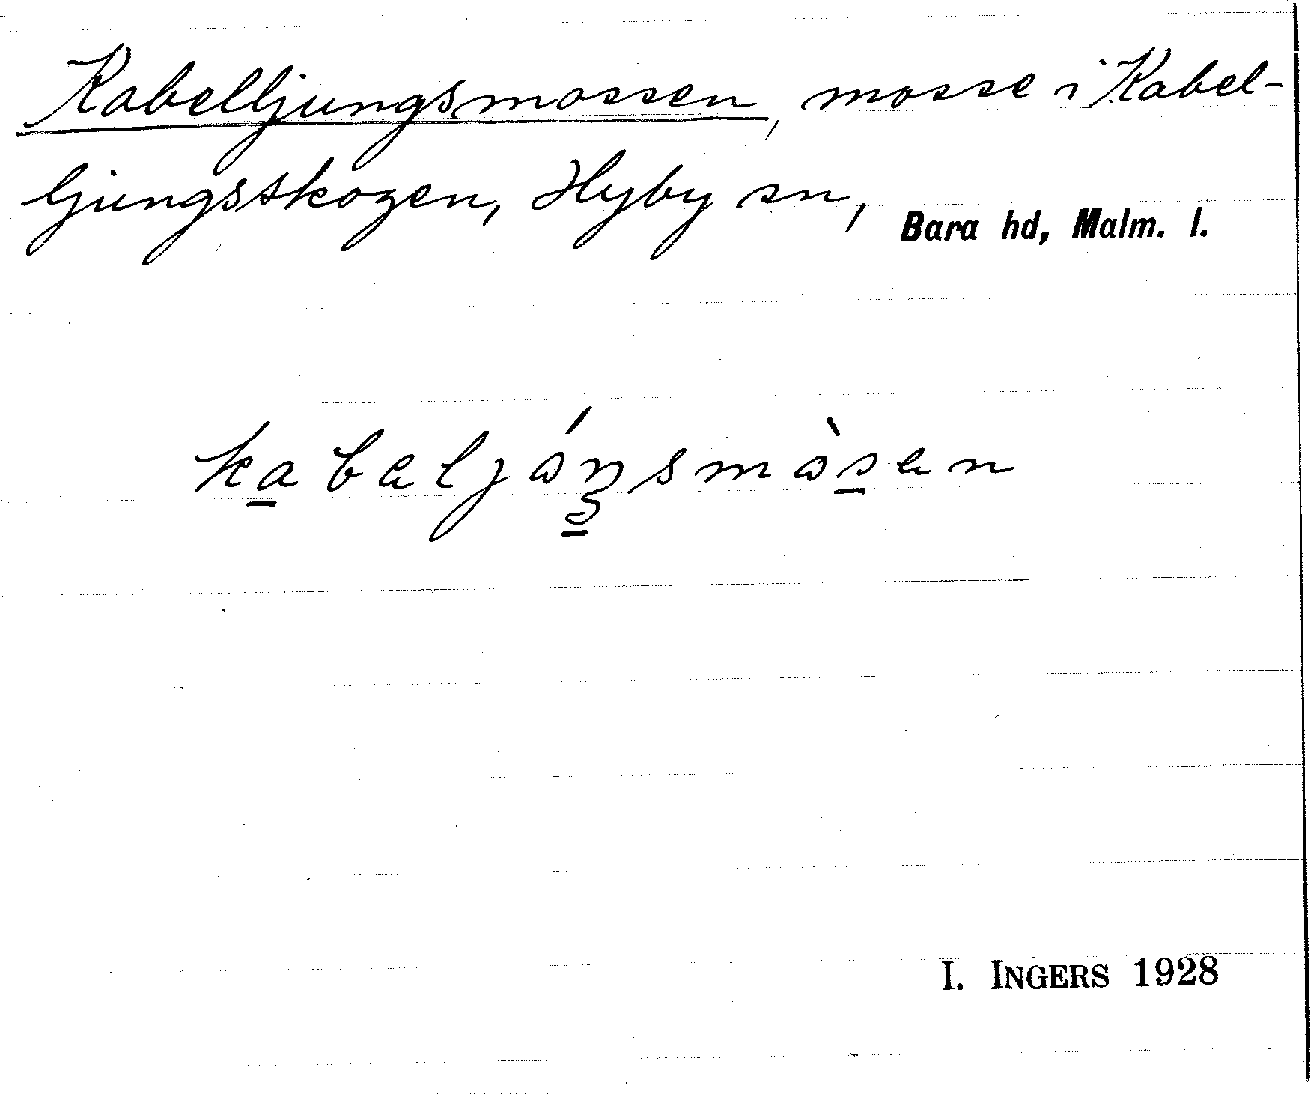 Kabelljungsmossen, mosse i Kabel-
ljungsskogen, Hyby sn, Bara hd, Malm. l.
kabaljóŋsmòsen
I. INGERS 1928